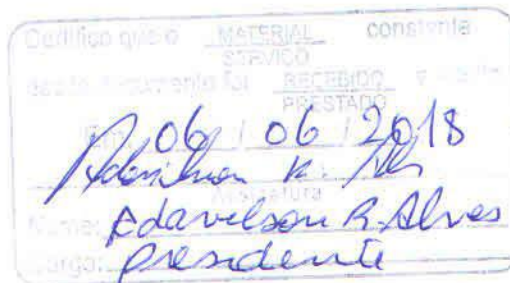 Certifico que o MATERIAL constante
SERVIÇO
deste documento foi RECEBIDO e
PRESTADO
Em 06 / 06 / 2018
Assinatura
Nome: Edavilson R. Alves
Cargo: Presidente